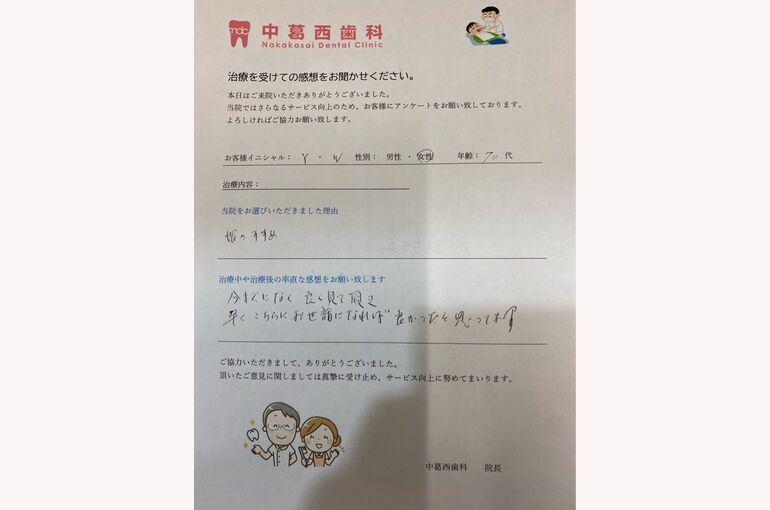 ndc 中葛西歯科
Nakakasai Dental Clinic
治療を受けての感想をお聞かせください。
本日はご来院いただきありがとうございました。
当院ではさらなるサービス向上のため、お客様にアンケートをお願い致しております。
よろしければご協力お願い致します。
お客様イニシャル： Y ・ W 性別： 男性 ・ 女性 年齢： 70 代
治療内容：
当院をお選びいただきました理由
娘のすすめ
治療中や治療後の率直な感想をお願い致します
今までになく 良く見て頂き
早く こちらにお世話になれば 良かったと思ってます
ご協力いただきまして、ありがとうございました。
頂いたご意見に関しましては真摯に受け止め、サービス向上に努めてまいります。
中葛西歯科 院長